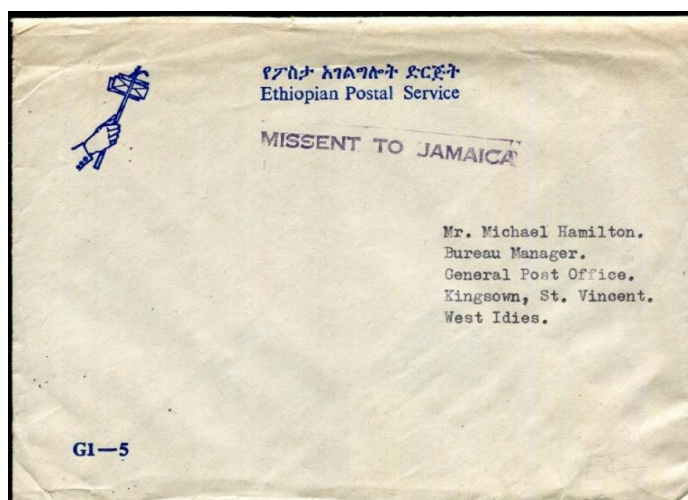 የፖስታ አገልግሎት ድርጅት
Ethiopian Postal Service
MISSENT TO JAMAICA
Mr. Michael Hamilton.
Bureau Manager.
General Post Office.
Kingsown, St. Vincent.
West Idies.
G1—5